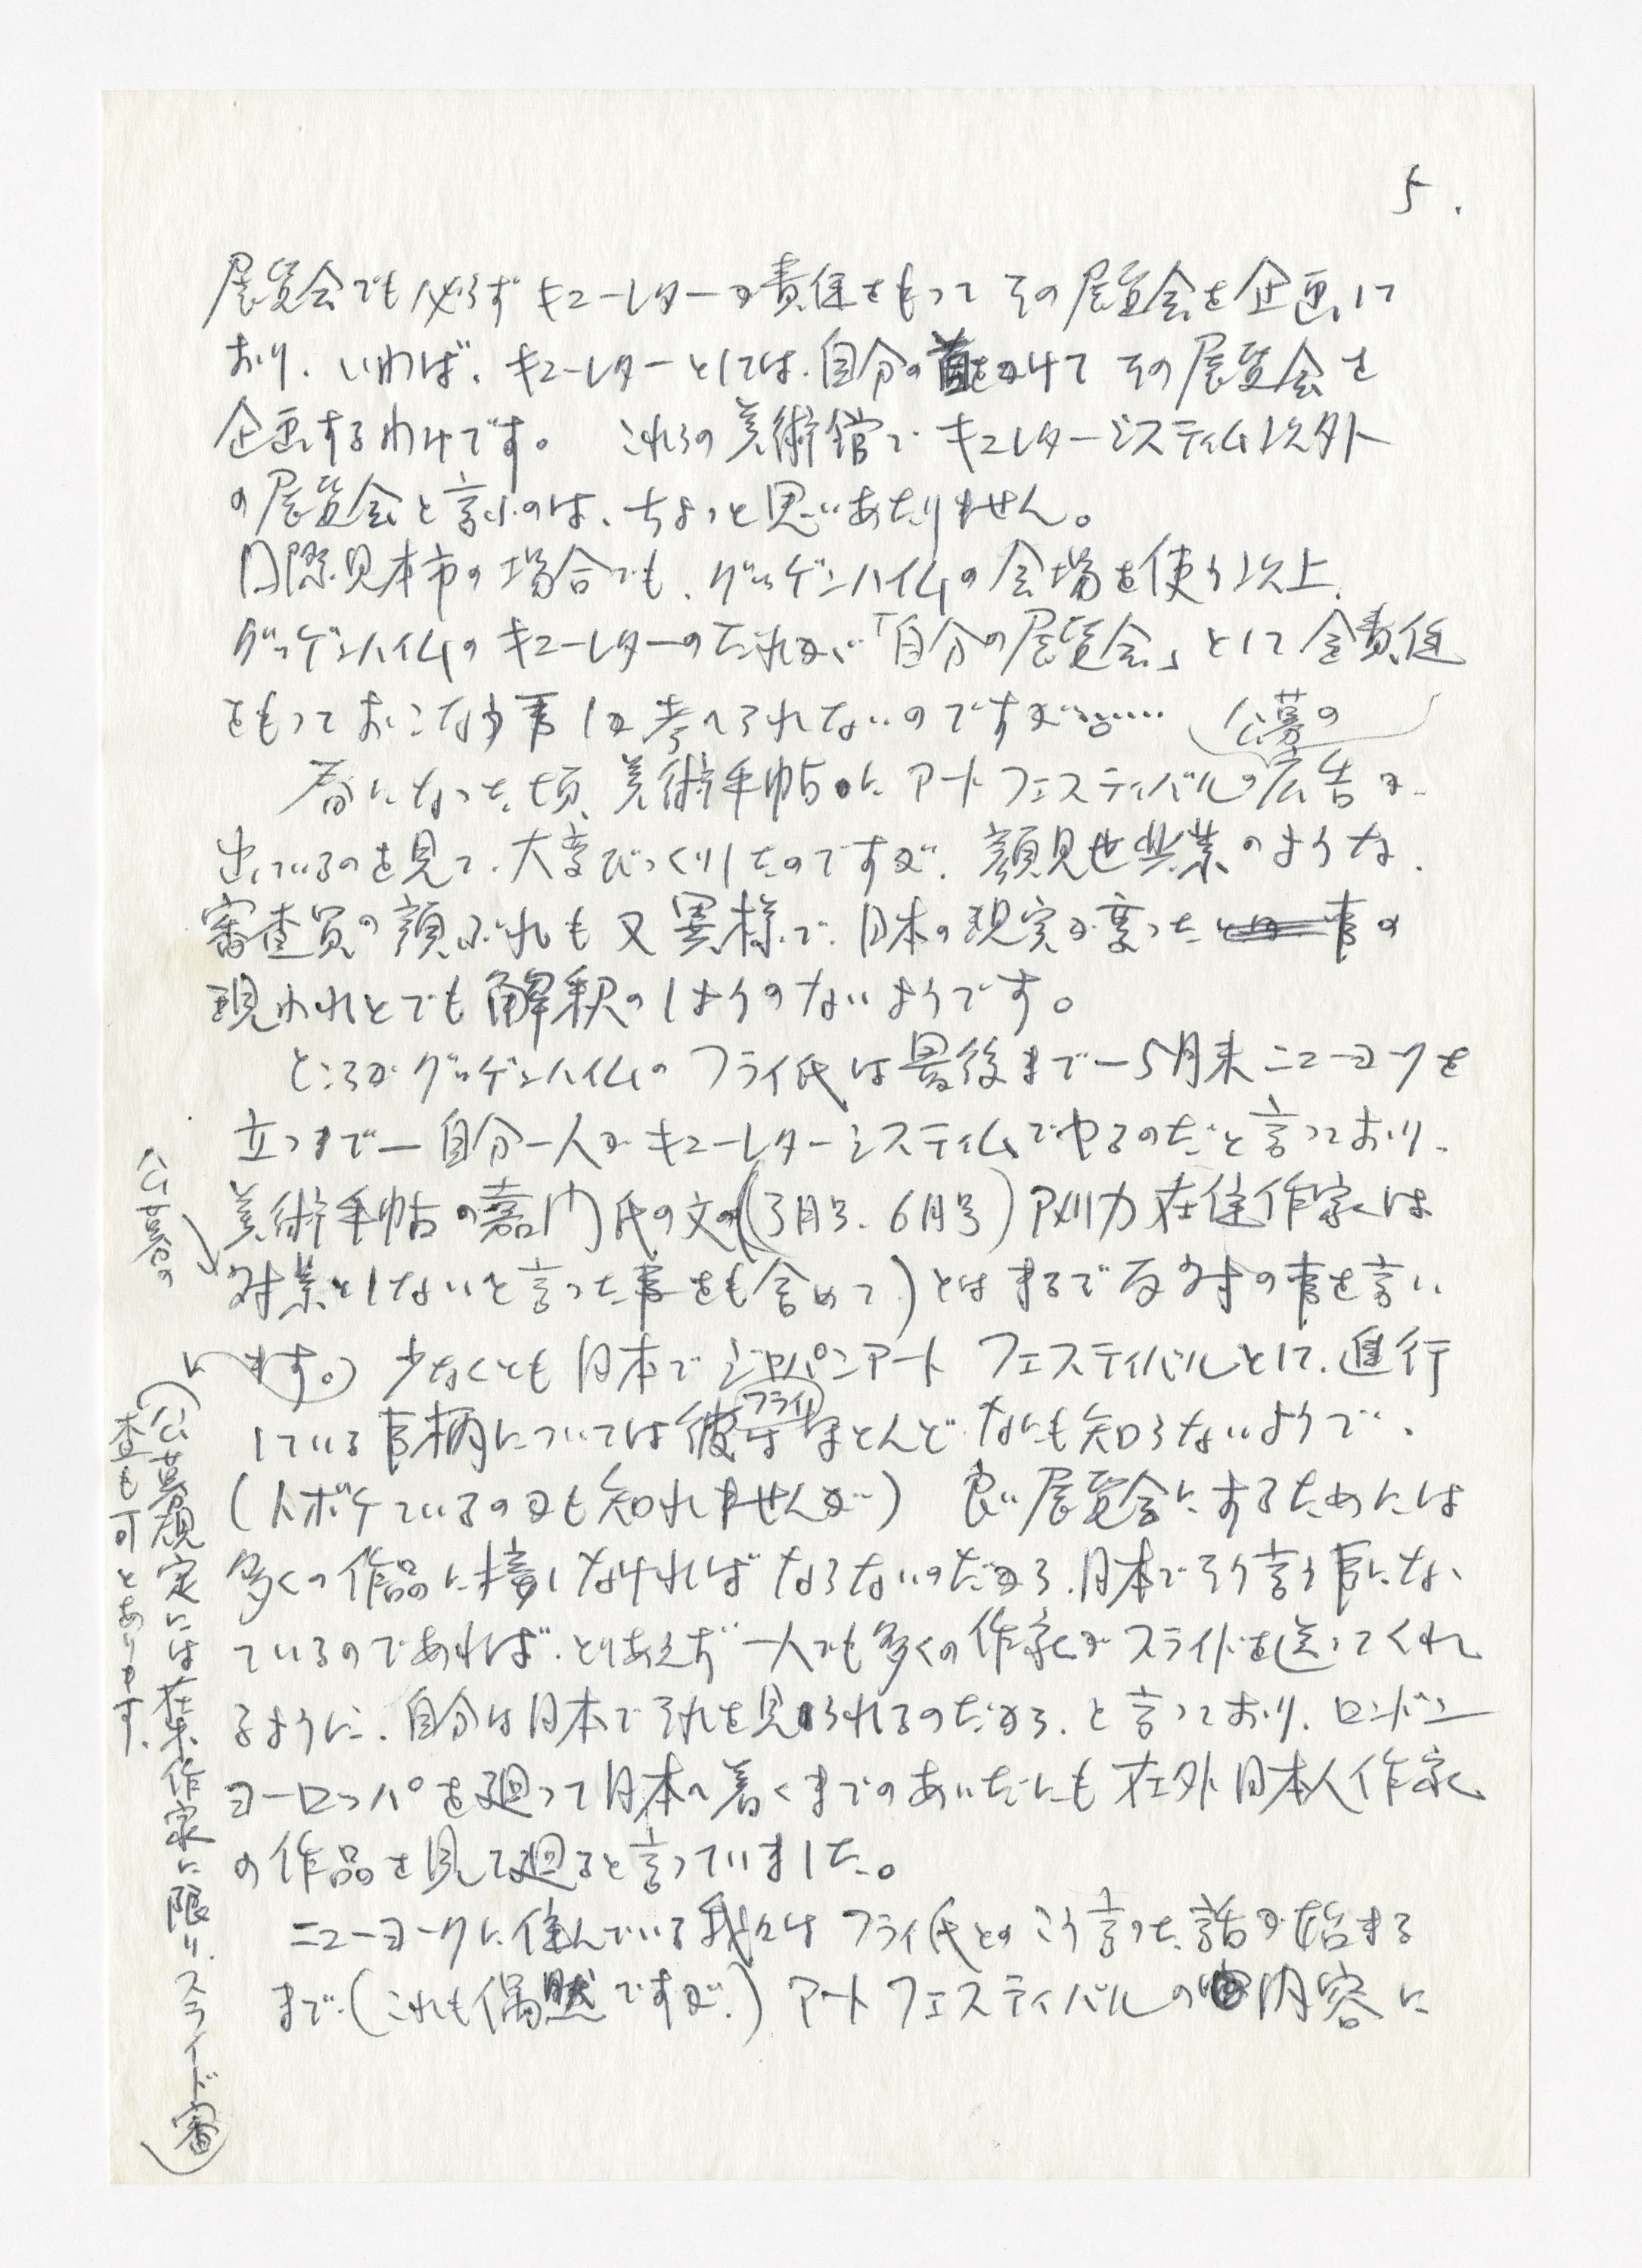 5.
展覧会でも必らずキューレターが責任をもってその展覧会を企画して
おり、いわば、キューレターとしては、自分の首をかけてその展覧会を
企画するわけです。 これらの美術館でキュレターシスティム以外
の展覧会と言うのは、ちょっと思いあたりません。
国際見本市の場合でも、グッゲンハイムの会場を使う以上、
グッゲンハイムのキューレターのだれかが「自分の展覧会」として全責任
をもっておこなう事しか考へられないのですが……
春になった頃、美術手帖にアートフェスティバルの公募の広告が
出ているのを見て、大変びっくりしたのですが、顔見世興業のような、
審査員の顔ぶれも又異様で、日本の現実が変った事の
現われとでも解釈のしようのないようです。
ところがグッゲンハイムのフライ氏は最後まで—5月末ニューヨークを
立つまで—自分一人がキューレターシスティムでやるのだと言っており、
美術手帖の嘉門氏の文(3月号、6月号)アメリカ在住作家は
公募の
対象としないと言った事をも含めて)とはまるで反対の事を言い
います。 少なくとも日本でジャパンアートフェスティバルとして、進行
している事柄については彼フライはほとんどなにも知らないようで、
(トボケているのかも知れませんが) 良い展覧会にするためには
多くの作品に接しなければならないのだから、日本でそう言う事になっ
ているのであれば、とりあえず一人でも多くの作家がスライドを送ってくれ
るように、自分は日本でそれを見られるのだから、と言っており、ロンドン
ヨーロッパを廻って日本へ着くまでのあいだにも在外日本人作家
の作品を見て廻ると言っていました。
ニューヨークに住んでいる我々はフライ氏とのこう言った話が始まる
まで(これも偶然ですが、)アートフェスティバルの内容に
(公募規定には在米作家に限り、スライド審
査も可とあります。